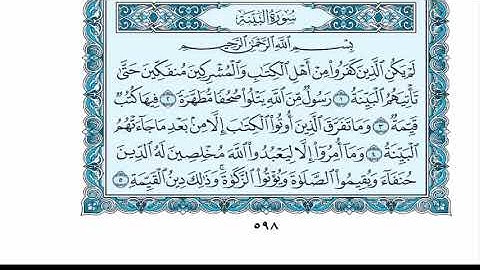 سُورَةُ الْبَيِّنَةِ
بِسْمِ اللَّهِ الرَّحْمَٰنِ الرَّحِيمِ
لَمْ يَكُنِ الَّذِينَ كَفَرُوا مِنْ أَهْلِ الْكِتَابِ وَالْمُشْرِكِينَ مُنفَكِّينَ حَتَّىٰ
تَأْتِيَهُمُ الْبَيِّنَةُ ١ رَسُولٌ مِّنَ اللَّهِ يَتْلُوا صُحُفًا مُّطَهَّرَةً ٢ فِيهَا كُتُبٌ
قَيِّمَةٌ ٣ وَمَا تَفَرَّقَ الَّذِينَ أُوتُوا الْكِتَابَ إِلَّا مِنْ بَعْدِ مَا جَاءَتْهُمُ
الْبَيِّنَةُ ٤ وَمَا أُمِرُوا إِلَّا لِيَعْبُدُوا اللَّهَ مُخْلِصِينَ لَهُ الدِّينَ
حُنَفَاءَ وَيُقِيمُوا الصَّلَوٰةَ وَيُؤْتُوا الزَّكَوٰةَ وَذَٰلِكَ دِينُ الْقَيِّمَةِ ٥
٥٩٨